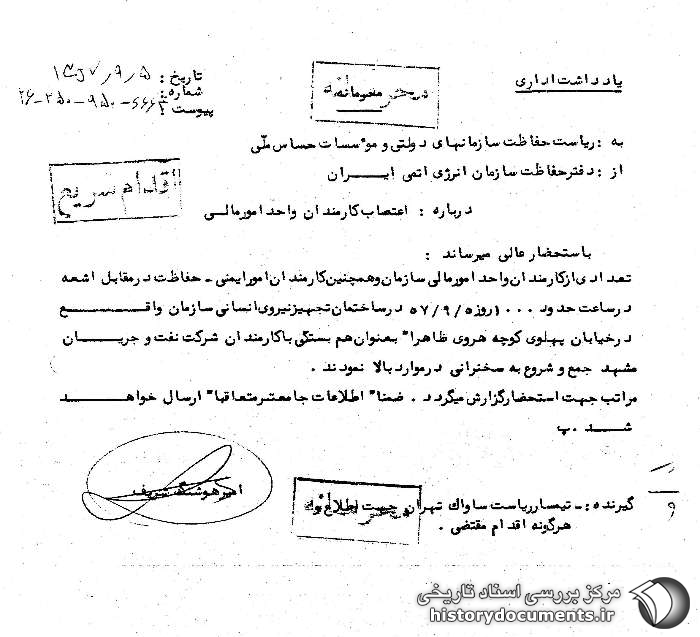 یادداشت اداری
محرمانه
تاریخ :
شماره :
پیوست :
به : ریاست حفاظت سازمانهای دولتی و موٴسسات حساس ملّی
از : دفترحفاظت سازمان انرژی اتمی ایــران
اقدام سریع
درباره : اعتصاب کارمندان واحد امورمالی
باستحضار عالی میرساند :
تعدادی ازکارمندان واحد امورمالی سازمان وهمچنین کارمندان امورایمنی ـ حفاظت درمقابل اشعه
درساعت حدود ۱۰۰۰ روز ۵۷/۹/۵ درساختمان تجهیزنیروی انسانی سازمان واقــــع
درخیابان پهلوی کوچه هروی ظاهرا" بعنوان هم بستگی باکارمندان شرکت نفت و جریــان
مشهد جمع و شروع به سخنرانی درموارد بالا نمودند .
مراتب جهت استحضارگزارش میگردد . ضمنا" اطلاعات جامعترمتعاقبا" ارسال خواهــــد
شــــد .پ
امیرهوشنگ شریف
گیرنده :ـ تیمسار ریاست ساواک تهران جهت اطلاع و
هرگونه اقدام مقتضی .
مرکز بررسی اسناد تاریخی
historydocuments.ir